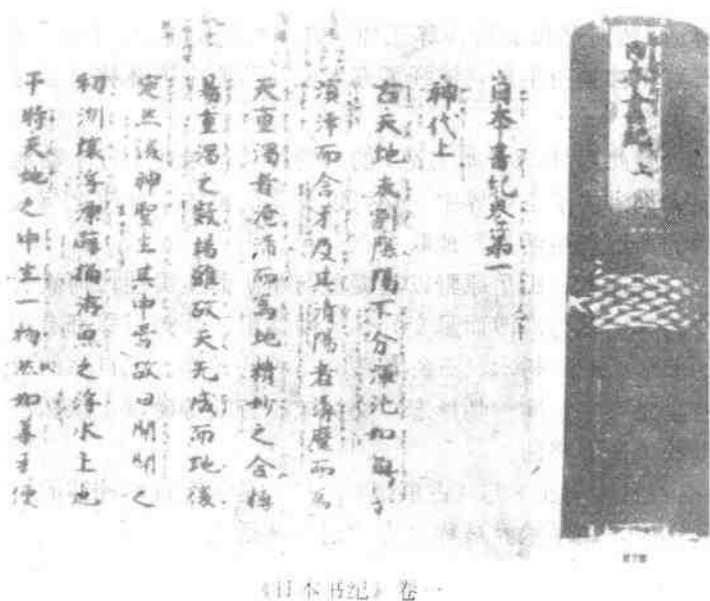 日本書紀 上
日本書紀卷第一
神代上
古天地未剖陰陽不分渾沌如雞子
溟涬而含牙及其清陽者薄靡而爲
天重濁者淹滯而爲地精妙之合搏
易重濁之凝竭難故天先成而地後
定然後神聖生其中焉故曰開闢之
初洲壤浮漂譬猶游魚之浮水上也
于時天地之中生一物狀如葦牙便
《日本书纪》卷一